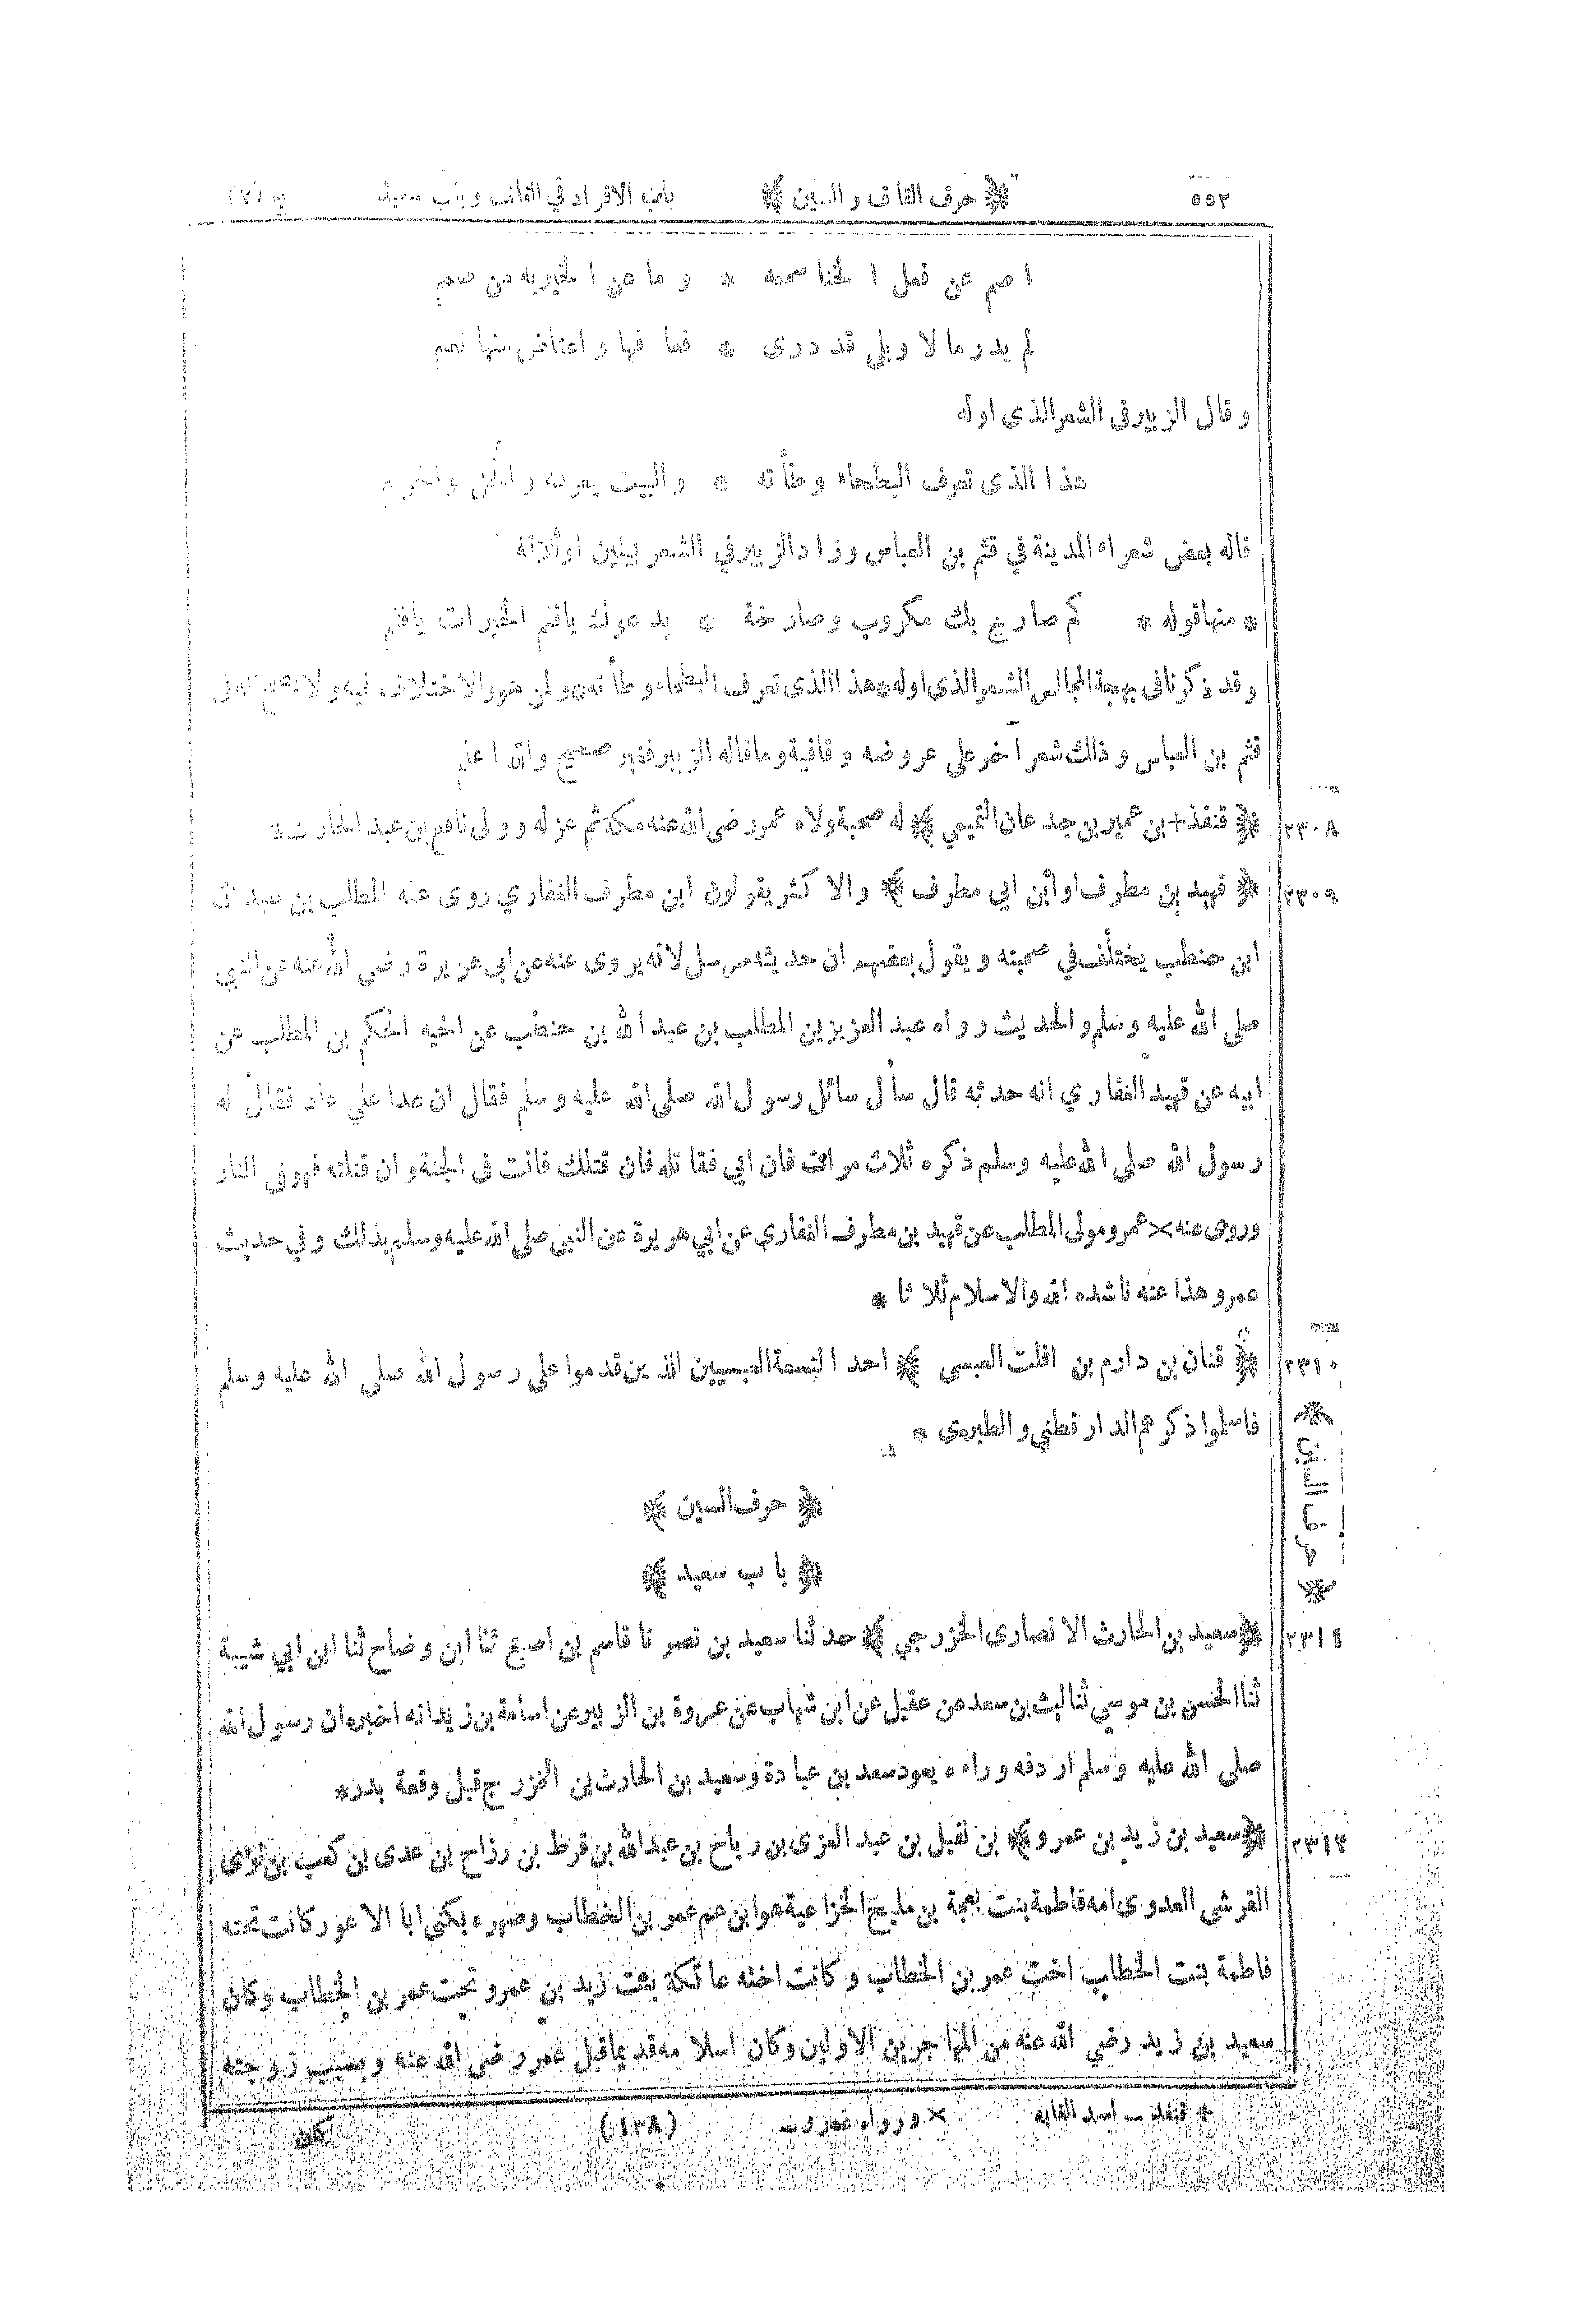 ٥٥٢ ﴿ حرف القاف والسين ﴾ باب الافراد في القاف وباب سعيد ج (٢)
اصم عن فعل الخنا سمعه * وما عن الخير به من صمم
لم يدر ما لا وبلى قد درى * فعا فها واعتاض منها نعم
وقال الزبير فى الشعر الذى اوله
هذا الذى تعرف البطحاء وطأته * والبيت يعرفه والحل والحرم
قاله بعض شعراء المدينة في قثم بن العباس وزاد الزبير في الشعر بيتين او ثلاثة
* منها قوله * كم صارخ بك مكروب وصارخة * يدعوك ياقثم الخيرات ياقثم
وقد ذكرنا فى بهجة المجالس الشعر الذى اوله * هذا الذى تعرف البطحاء وطأته * ولمن هو والاختلاف فيه ولا يصح انه فى
قثم بن العباس وذلك شعر آخر على عروضه وقافية وما قاله الزبير فغير صحيح والله اعلم
٢٣٠٨ ﴿ قنفذ + بن عمير بن جدعان التميمي ﴾ له صحبة ولاه عمر رضى الله عنه مكة ثم عزله وولى نافع بن عبد الحارث *
٢٣٠٩ ﴿ قهيد بن مطرف او ابن ابي مطرف ﴾ والاكثر يقولون ابن مطرف الغفاري روى عنه المطلب بن عبد الله
ابن حنطب يختلف في صحبته ويقول بعضهم ان حديثه مرسل لانه يروى عنه عن ابى هريرة رضى الله عنه عن النبي
صلى الله عليه وسلم والحديث رواه عبد العزيز بن المطلب بن عبد الله بن حنطب عن اخيه الحكم بن المطلب عن
ابيه عن قهيد الغفاري انه حدثه قال سأل سائل رسول الله صلى الله عليه وسلم فقال ان عدا علي عاد فقال له
رسول الله صلى الله عليه وسلم ذكره ثلاث مرات فان ابي فقاتله فان قتلك فانت فى الجنة وان قتلته فهو فى النار
وروى عنه × عمرو مولى المطلب عن قهيد بن مطرف الغفاري عن ابي هريرة عن النبي صلى الله عليه وسلم بذلك وفي حديث
عمرو هذا عنه ناشده الله والاسلام ثلاثا *
٢٣١٠ ﴿ قنان بن دارم بن افلت العبسى ﴾ احد التسعة العبسيين الذين قدموا على رسول الله صلى الله عليه وسلم
فاسلموا ذكرهم الدارقطني والطبرى *
﴿ حرف السين ﴾
﴿ حرف السين ﴾
﴿ باب سعيد ﴾
٢٣١١ ﴿ سعيد بن الحارث الانصارى الخزرجي ﴾ حدثنا سعيد بن نصر نا قاسم بن اصبغ ثنا ابن وضاح ثنا ابن ابي شيبة
ثنا الحسن بن موسى ثنا ليث بن سعد عن عقيل عن ابن شهاب عن عروة بن الزبير عن اسامة بن زيد انه اخبره ان رسول الله
صلى الله عليه وسلم اردفه وراءه يعود سعد بن عبادة وسعيد بن الحارث بن الخزرج قبل وقعة بدر *
٢٣١٢ ﴿ سعيد بن زيد بن عمرو ﴾ بن نفيل بن عبد العزى بن رباح بن عبد الله بن قرط بن رزاح بن عدى بن كعب بن لؤى
القرشى العدوى امه فاطمة بنت بعجة بن مليح الخزاعية هو ابن عم عمر بن الخطاب وصهره يكنى ابا الاعور كانت تحته
فاطمة بنت الخطاب اخت عمر بن الخطاب وكانت اخته عاتكة بنت زيد بن عمرو تحت عمر بن الخطاب وكان
سعيد بن زيد رضي الله عنه من المهاجرين الاولين وكان اسلامه قديما قبل عمر رضى الله عنه وبسبب زوجته
+ قنفد ــ اسد الغابه × ورواه عمرو ــ (١٣٨) كان